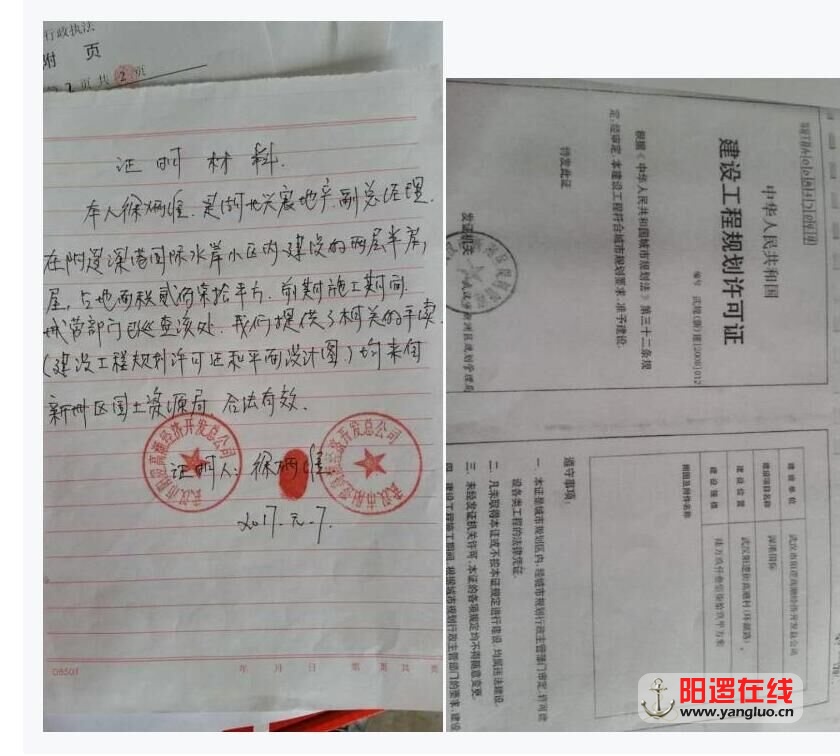 行政执法
附 页
页 共 2 页
证 明 材 料.
本人徐炳 是湖北兴震地产副总经理.
在阳逻深港国际水岸小区内建设的两层半房
屋,占地面积贰佰 拾平方.前期施工期间
城管部门已经查该处.我们提供了相关的手续
(建设工程规划许可证和平面设计图)均来自
新洲区国土资源局.合法有效.
证明人:徐炳
2017.元.7.
武汉市阳逻高潮经济开发总公司
武汉市阳逻高潮经济开发总公司
08501
年 月 日 第 页 共 页
中华人民共和国
建设工程规划许可证
编号 武规(新)建[2008]012
根据《中华人民共和国城市规划法》第三十二条规
定,经审定,本建设工程符合城市规划要求,准予建设。
特发此证
发证机关
武汉市新洲区规划管理局
建设单位 武汉市阳逻高潮经济开发总公司
建设项目名称 深港国际
建设位置 武汉阳逻街高潮村(环湖路)、
建设规模 陆万贰仟叁佰柒拾 平方米
附图及附件名称
遵守事项:
一、本证是城市规划区内,经城市规划行政主管部门审定,许可建
设各类工程的法律凭证。
二、凡未取得本证或不按本证规定进行建设,均属违法建设。
三、未经发证机关许可,本证的各项规定均不得随意变更。
四、建设工程施工期间,根据城市规划行政主管部门的要求,建设
阳逻在线
www.yangluo.cn